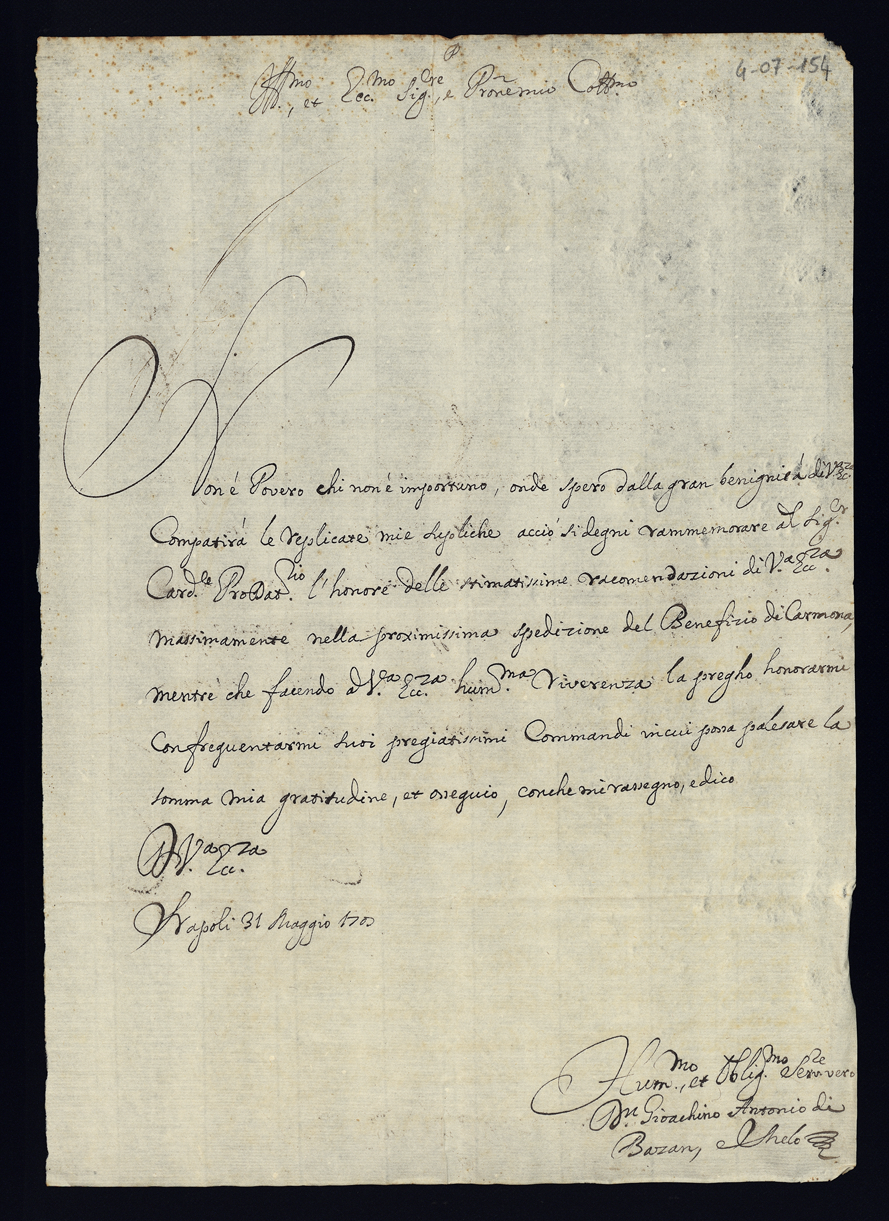 P.
4-07-154
Ill.mo, et Ecc.mo Sig.re, e Pron mio Coll.mo
Non è Povero chi non è importuno, onde spero dalla gran benignità di V.Ecc.za
Compatirà le replicate mie supliche acciò si degni rammemorare al Sig.r
Card.le ProDat.rio l'honore delle stimatissime racomendazioni di V.a Ecc.za
massimamente nella prossimissima spedizione del Benefizio di Carmona,
mentre che facendo a V.a Ecc.za hum.ma riverenza la pregho honorarmi
Con frequentarmi suoi pregiatissimi Commandi in cui possa palesare la
somma mia gratitudine, et ossequio, con che mi rassegno, e dico
Di V.a Ecc.za
Napoli 31 Maggio
Hum.mo, et Oblig.mo Serv.re vero
Dn Gioachino Antonio di
Bazan, e